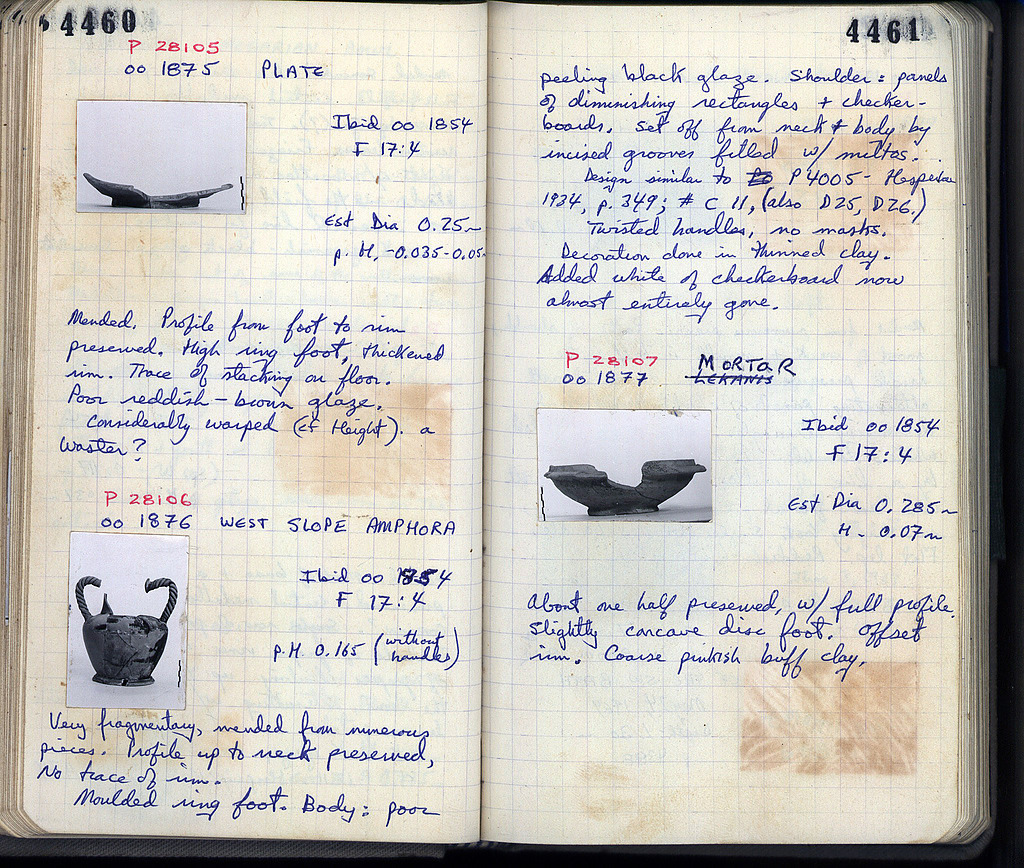 4460
P 28105
OO 1875 PLATE
Ibid OO 1854
F 17:4
Est Dia 0.25m
p. H. -0.035-0.05
Mended. Profile from foot to rim
preserved. High ring foot, thickened
rim. Trace of stacking on floor.
Poor reddish-brown glaze.
Considerably warped (cf Height). a
waster?
P 28106
OO 1876 WEST SLOPE AMPHORA
Ibid OO 1854
F 17:4
p.H. 0.165 (without
handles)
Very fragmentary, mended from numerous
pieces. Profile up to neck preserved,
No trace of rim.
Moulded ring foot. Body: poor
4461
peeling black glaze. Shoulder: panels
of diminishing rectangles + checker-
boards. set off from neck + body by
incised grooves filled w/ miltos.
Design similar to P 4005 - Hesperia
1934, p. 349; # C 11, (also D25, D26.)
Twisted handles, no masks.
Decoration done in thinned clay.
Added white of checkerboard now
almost entirely gone.
P 28107 MORTAR
OO 1877. LEKANIS
Ibid OO 1854
F 17:4
Est Dia 0.285m
H. 0.07m
About one half preserved, w/ full profile.
Slightly concave disc foot. Offset
rim. Coarse pinkish buff clay.